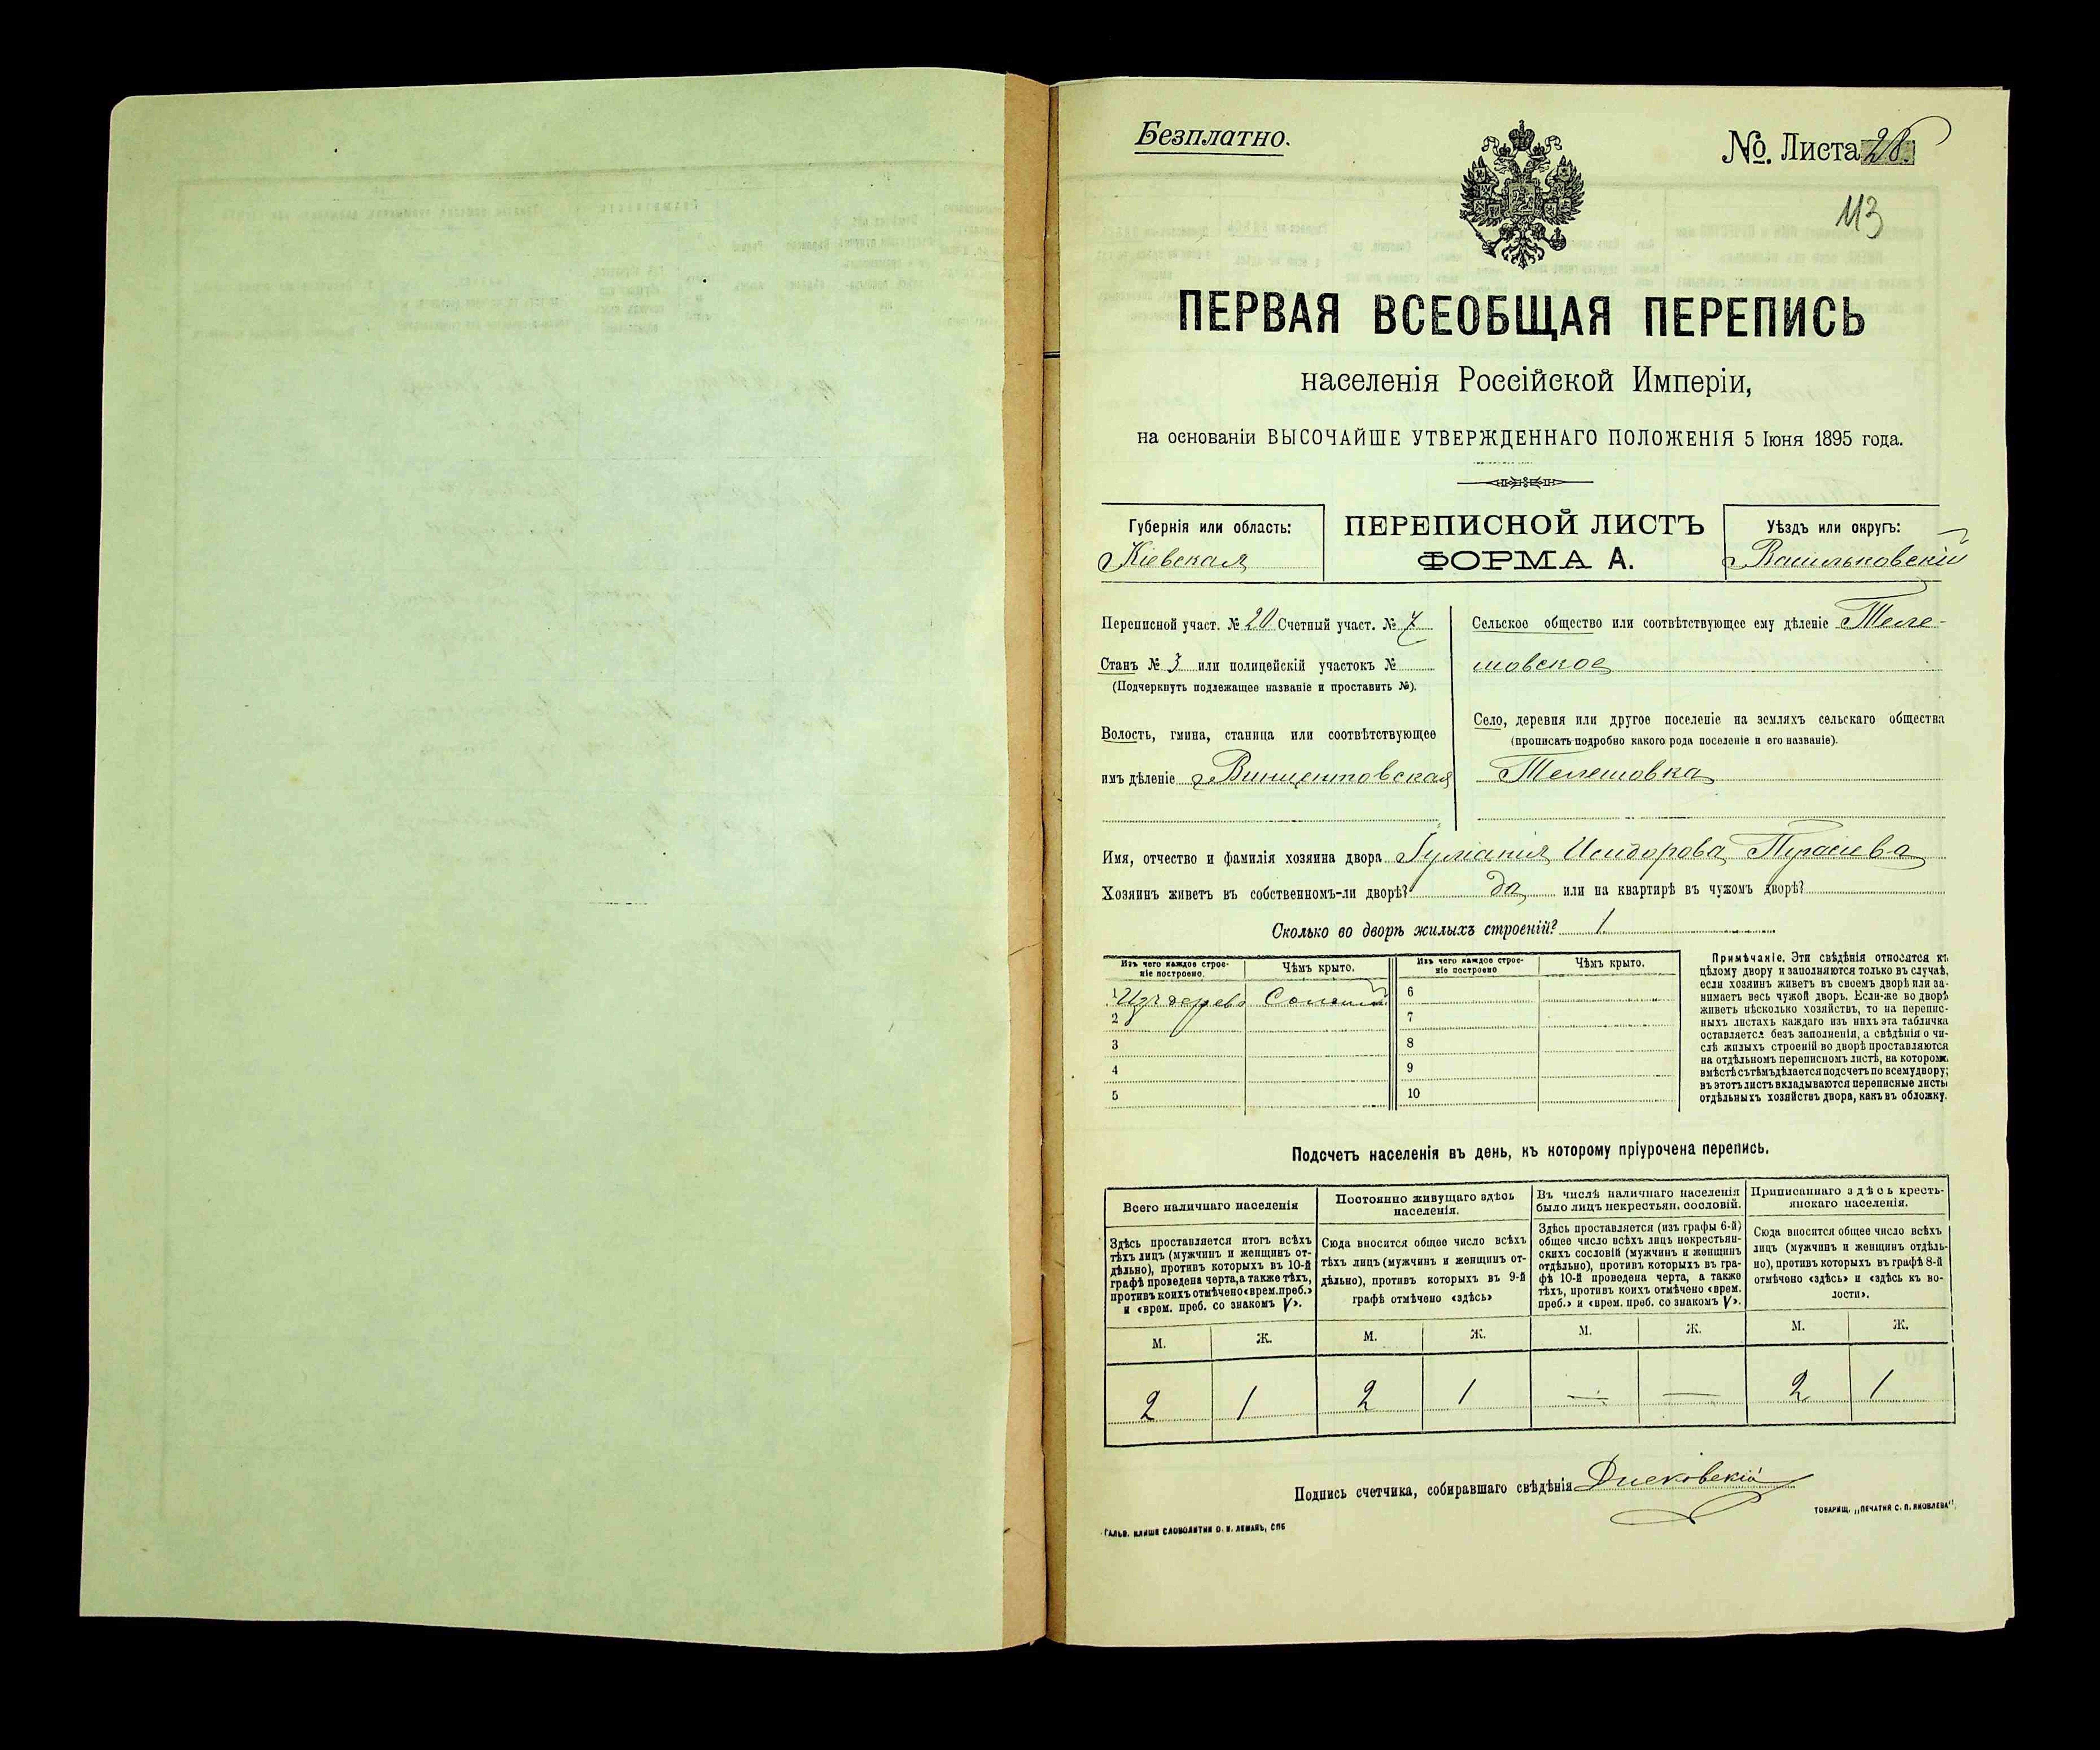 Безплатно.
№. Листа 28.
113
ПЕРВАЯ ВСЕОБЩАЯ ПЕРЕПИСЬ
населенія Россійской Имперіи,
на основаніи ВЫСОЧАЙШЕ УТВЕРЖДЕННАГО ПОЛОЖЕНІЯ 5 Іюня 1895 года.
Губернія или область:
Кіевская
ПЕРЕПИСНОЙ ЛИСТЪ
ФОРМА А.
Уѣздъ или округъ:
Васильковскій
Переписной участ. № 20 Счетный участ. № 7
Станъ № 3 или полицейскій участокъ №
(Подчеркнуть подлежащее названіе и проставить №).
Волость, гмина, станица или соотвѣтствующее
имъ дѣленіе Винцентовская
Сельское общество или соотвѣтствующее ему дѣленіе Теле-
шовское
Село, деревня или другое поселеніе на земляхъ сельскаго общества
(прописать подробно какого рода поселеніе и его названіе).
Телешовка
Имя, отчество и фамилія хозяина двора Исидорова
Хозяинъ живетъ въ собственномъ-ли дворѣ? да или на квартирѣ въ чужомъ дворѣ?
Сколько во дворѣ жилыхъ строеній? 1
Изъ чего каждое строе-
ніе построено.
Чѣмъ крыто.
Изъ чего каждое строе-
ніе построено
Чѣмъ крыто.
1 Изъ дерева Соломой
2
3
4
5
6
7
8
9
10
Примѣчаніе. Эти свѣдѣнія относятся къ
цѣлому двору и заполняются только въ случаѣ,
если хозяинъ живетъ въ своемъ дворѣ или за-
нимаетъ весь чужой дворъ. Если-же во дворѣ
живетъ нѣсколько хозяйствъ, то на перепис-
ныхъ листахъ каждаго изъ нихъ эта табличка
оставляется безъ заполненія, а свѣдѣнія о чи-
слѣ жилыхъ строеній во дворѣ проставляются
на отдѣльномъ переписномъ листѣ, на которомъ
вмѣстѣ съ тѣмъ дѣлается подсчетъ по всему двору;
въ этотъ листъ вкладываются переписные листы
отдѣльныхъ хозяйствъ двора, какъ въ обложку.
Подсчетъ населенія въ день, къ которому пріурочена перепись.
Всего наличнаго населенія
Здѣсь проставляется итогъ всѣхъ
тѣхъ лицъ (мужчинъ и женщинъ от-
дѣльно), противъ которыхъ въ 10-й
графѣ проведена черта, а также тѣхъ,
противъ коихъ отмѣчено «врем. преб.»
и «врем. преб. со знакомъ V».
Постоянно живущаго здѣсь
населенія.
Сюда вносится общее число всѣхъ
тѣхъ лицъ (мужчинъ и женщинъ от-
дѣльно), противъ которыхъ въ 9-й
графѣ отмѣчено «здѣсь»
Въ числѣ наличнаго населенія
было лицъ некрестьян. сословій.
Здѣсь проставляется (изъ графы 6-й)
общее число всѣхъ лицъ некрестьян-
скихъ сословій (мужчинъ и женщинъ
отдѣльно), противъ которыхъ въ гра-
фѣ 10-й проведена черта, а также
тѣхъ, противъ коихъ отмѣчено «врем.
преб.» и «врем. преб. со знакомъ V».
Приписаннаго здѣсь кресть-
янскаго населенія.
Сюда вносится общее число всѣхъ
лицъ (мужчинъ и женщинъ отдѣль-
но), противъ которыхъ въ графѣ 8-й
отмѣчено «здѣсь» и «здѣсь къ во-
лости».
М. Ж. М. Ж. М. Ж. М. Ж.
2 1 2 1 — — 2 1
Подпись счетчика, собиравшаго свѣдѣнія
Гальв. клише словолитни О. И. Леманъ, СПБ
ТОВАРИЩ. „ПЕЧАТНЯ С. П. ЯКОВЛЕВА"